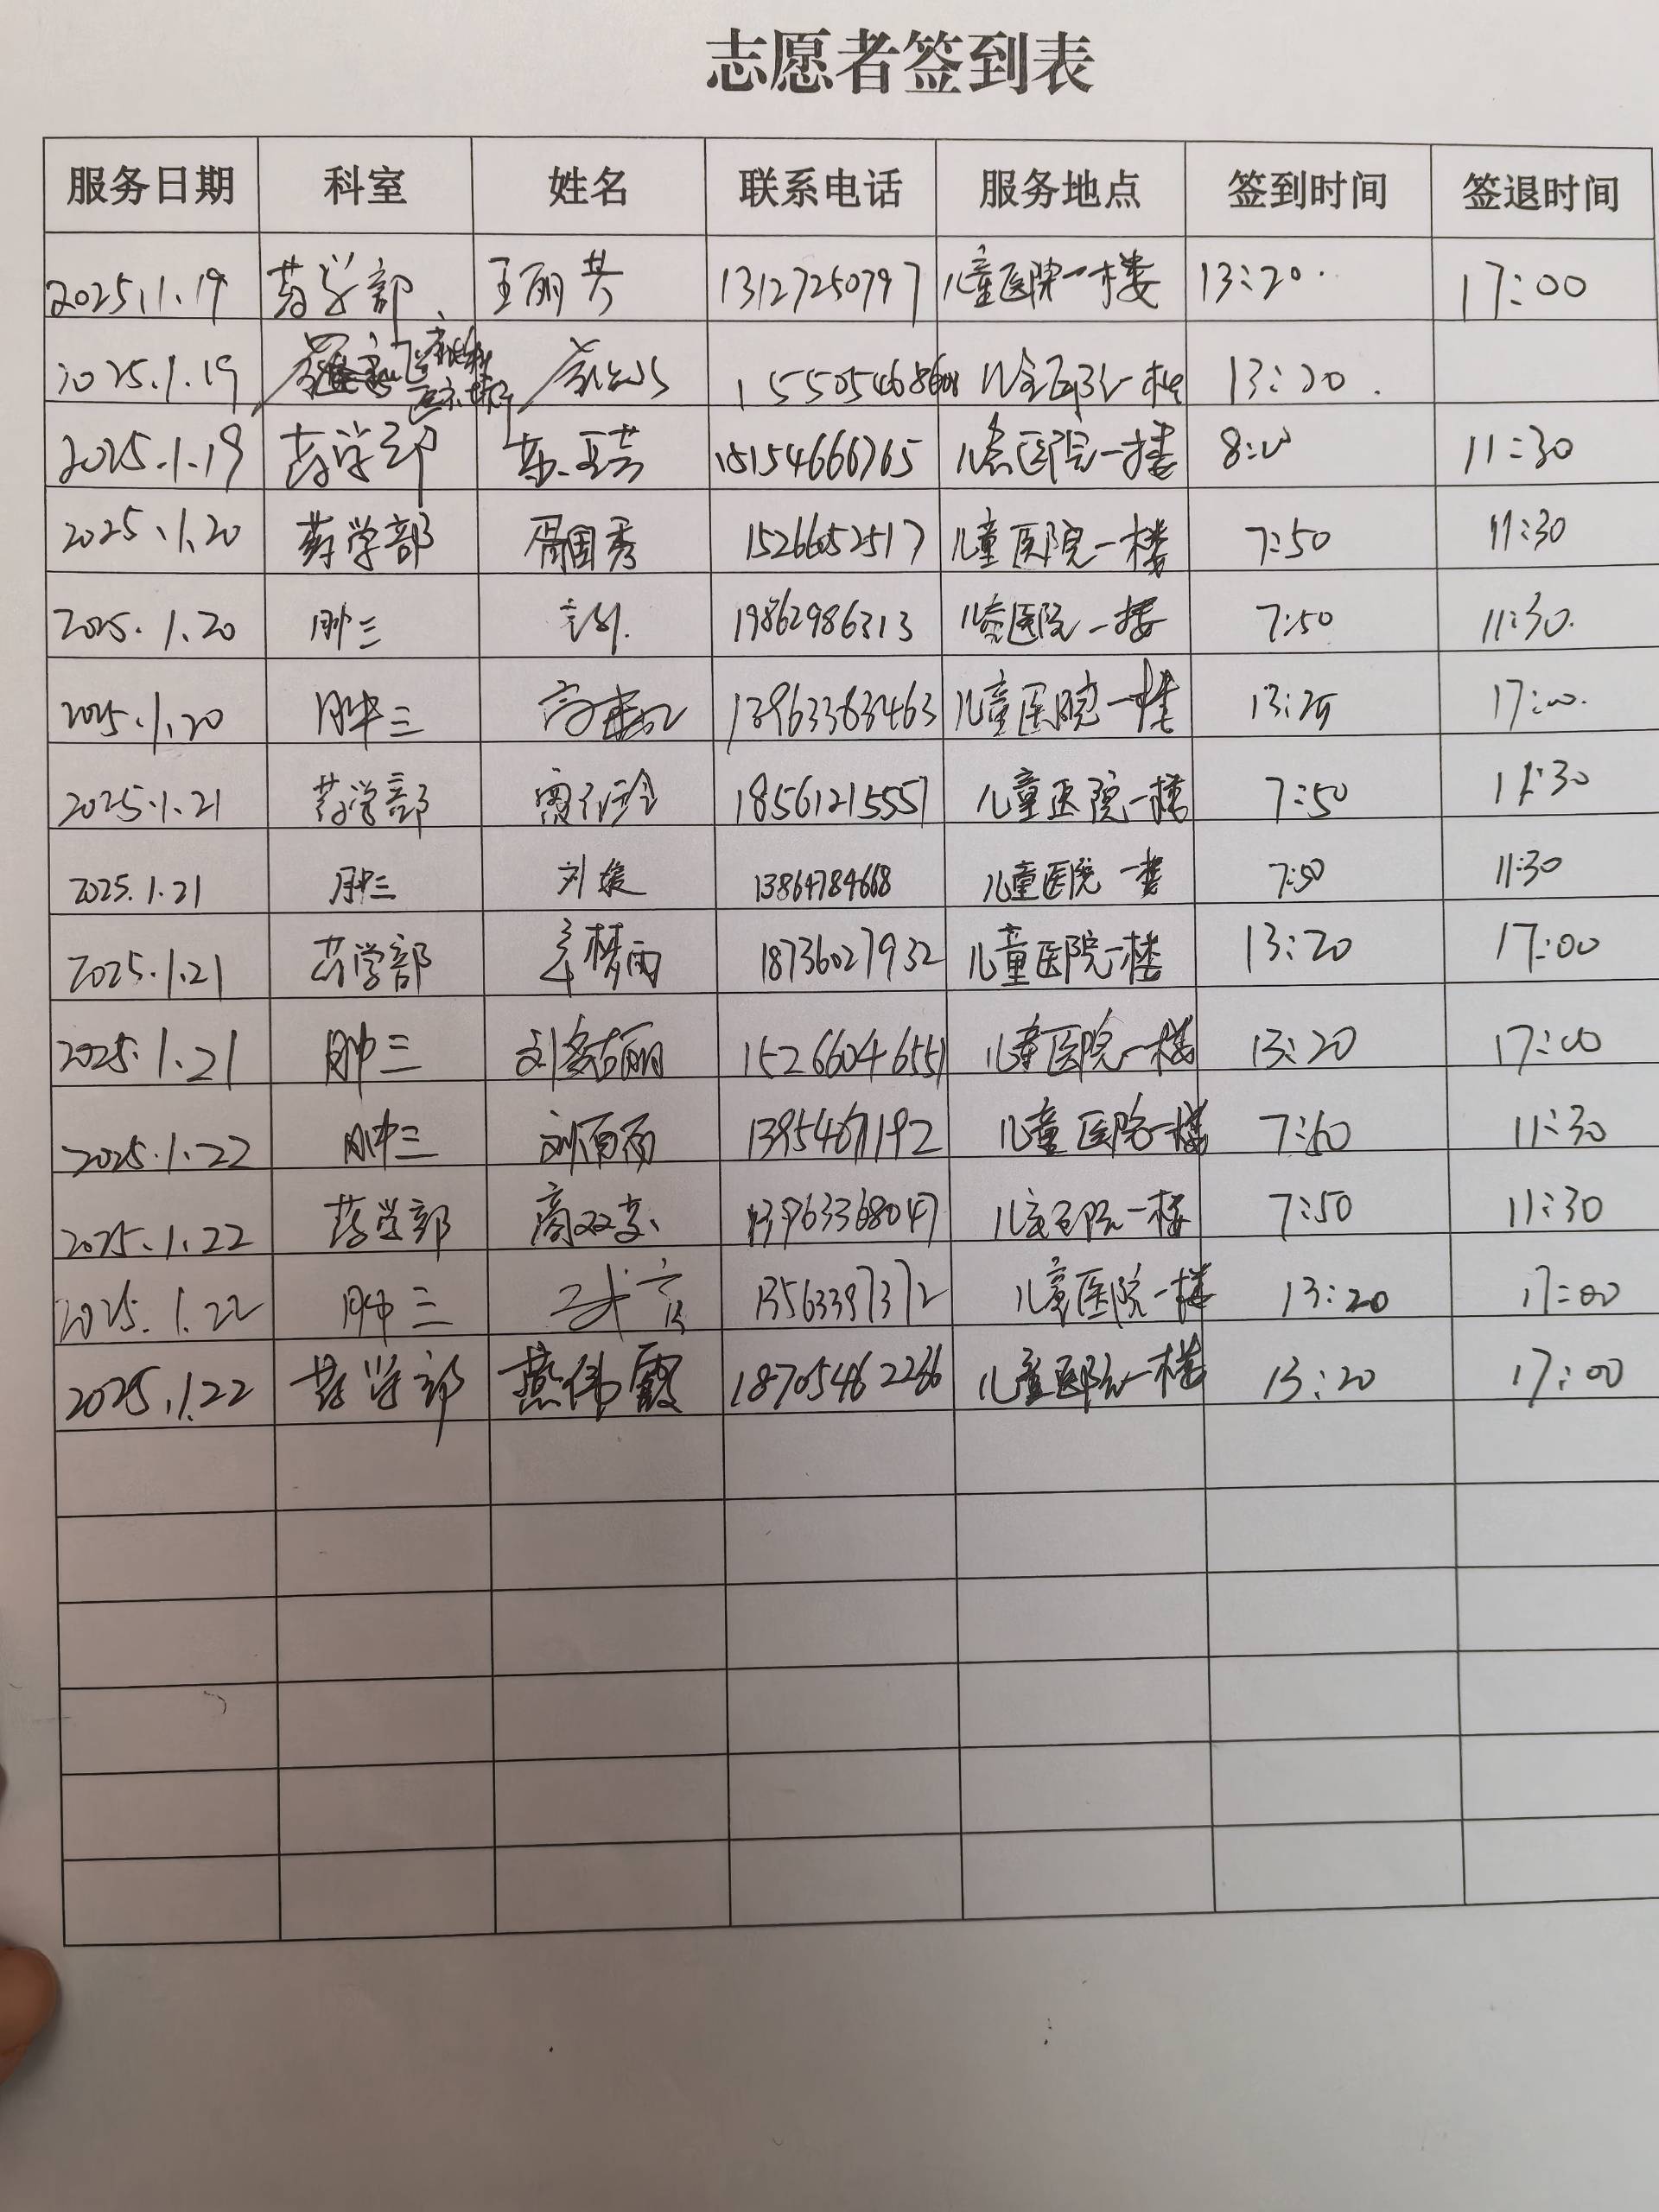 志愿者签到表
服务日期 科室 姓名 联系电话 服务地点 签到时间 签退时间
2025.1.19 药学部 王丽芳 13127250797 儿童医院一楼 13:20 17:00
2025.1.19 儿童医院一楼 13:20
2025.1.19 药学部 15154666765 儿童医院一楼 8:00 11:30
2025.1.20 药学部 胥国秀 15266052517 儿童医院一楼 7:50 11:30
2025.1.20 肿三 19862986313 儿童医院一楼 7:50 11:30
2025.1.20 肿三 13963383463 儿童医院一楼 17:00
2025.1.21 药学部 18561215557 儿童医院一楼 7:50 11:30
2025.1.21 肿三 刘媛 13864784668 儿童医院一楼 7:50 11:30
2025.1.21 药学部 辛梦雨 18736027932 儿童医院一楼 13:20 17:00
2025.1.21 肿三 15266046551 儿童医院一楼 13:20 17:00
2025.1.22 肿三 刘雨雨 儿童医院一楼 7:50 11:30
2025.1.22 药学部 13963368047 儿童医院一楼 7:50 11:30
2025.1.22 肿三 13563397372 儿童医院一楼 13:20 17:00
2025.1.22 药学部 燕伟霞 18705462266 儿童医院一楼 13:20 17:00